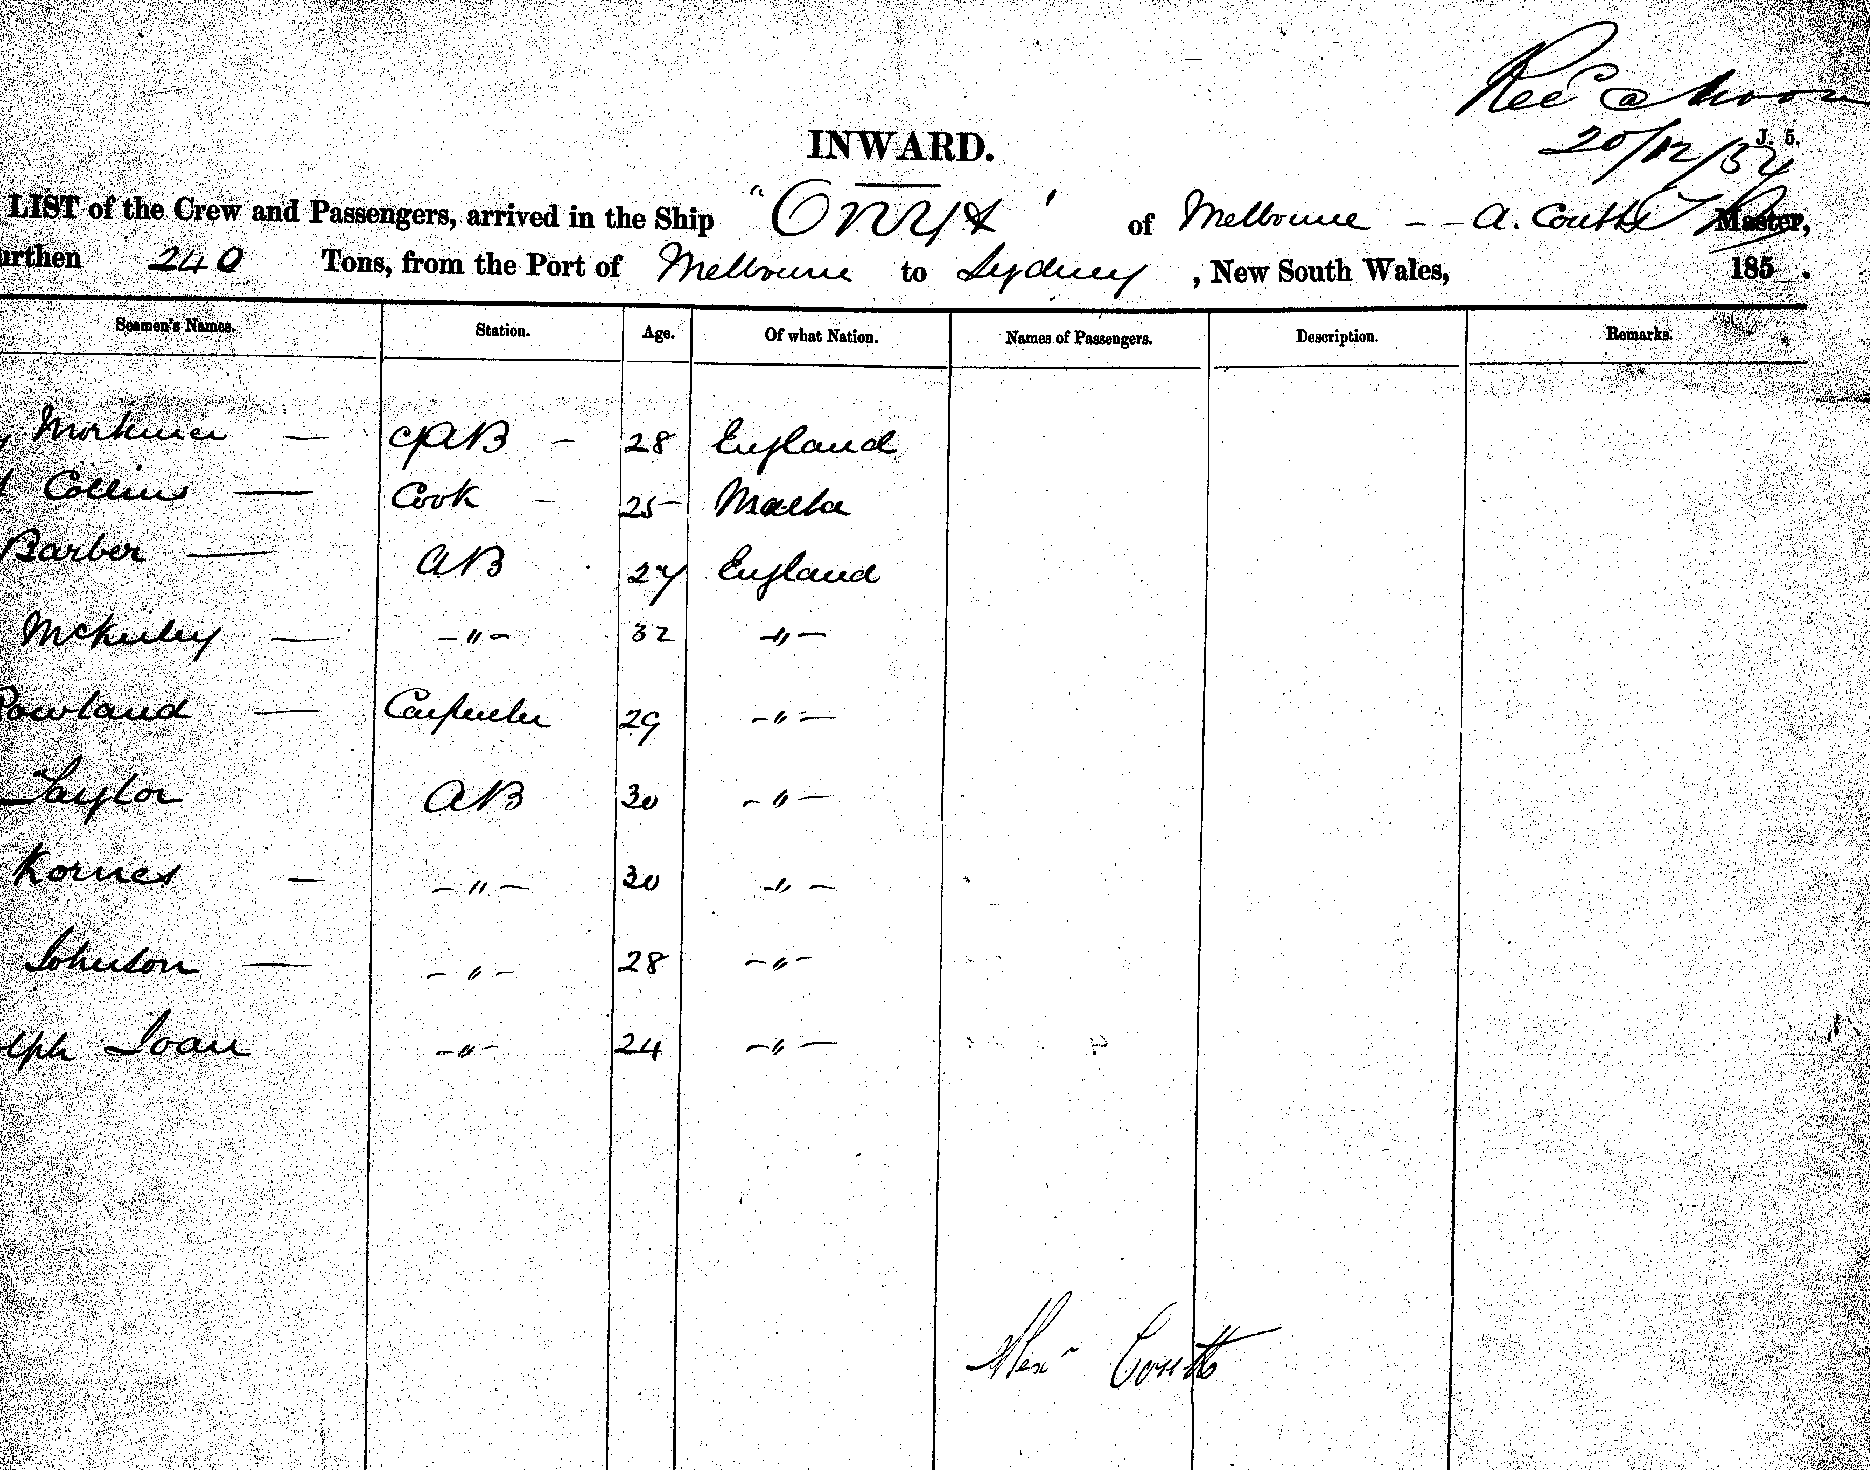 Rec @ Noon
20/12/54
J. 5.
INWARD.
LIST of the Crew and Passengers, arrived in the Ship "Onyx" of Melbourne - - A. Coutts Master,
urthen 240 Tons, from the Port of Melbourne to Sydney, New South Wales, 185 .
Seamen's Names. Station. Age. Of what Nation. Names of Passengers. Description. Remarks.
Mortimer — AB - 28 England
Collins — Cook - 25 Malta
Barber — AB 27 England
McKinley — -"- 32 -"-
Rowland — Carpenter 29 -"-
Taylor AB 30 -"-
Kornes - -"- 30 -"-
Johnson — -"- 28 -"-
olph Ioan -"- 24 -"-
Alexr Coutts